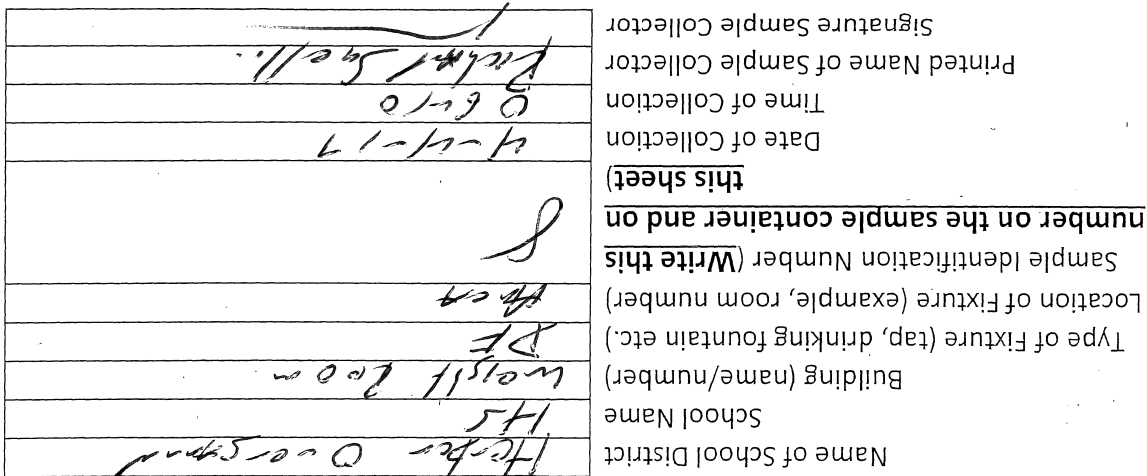 Name of School District
School Name HS
Building (name/number) Weight Room
Type of Fixture (tap, drinking fountain etc.) DF
Location of Fixture (example, room number)
Sample Identification Number (Write this
number on the sample container and on
this sheet) 8
Date of Collection 4-4-17
Time of Collection
Printed Name of Sample Collector
Signature Sample Collector